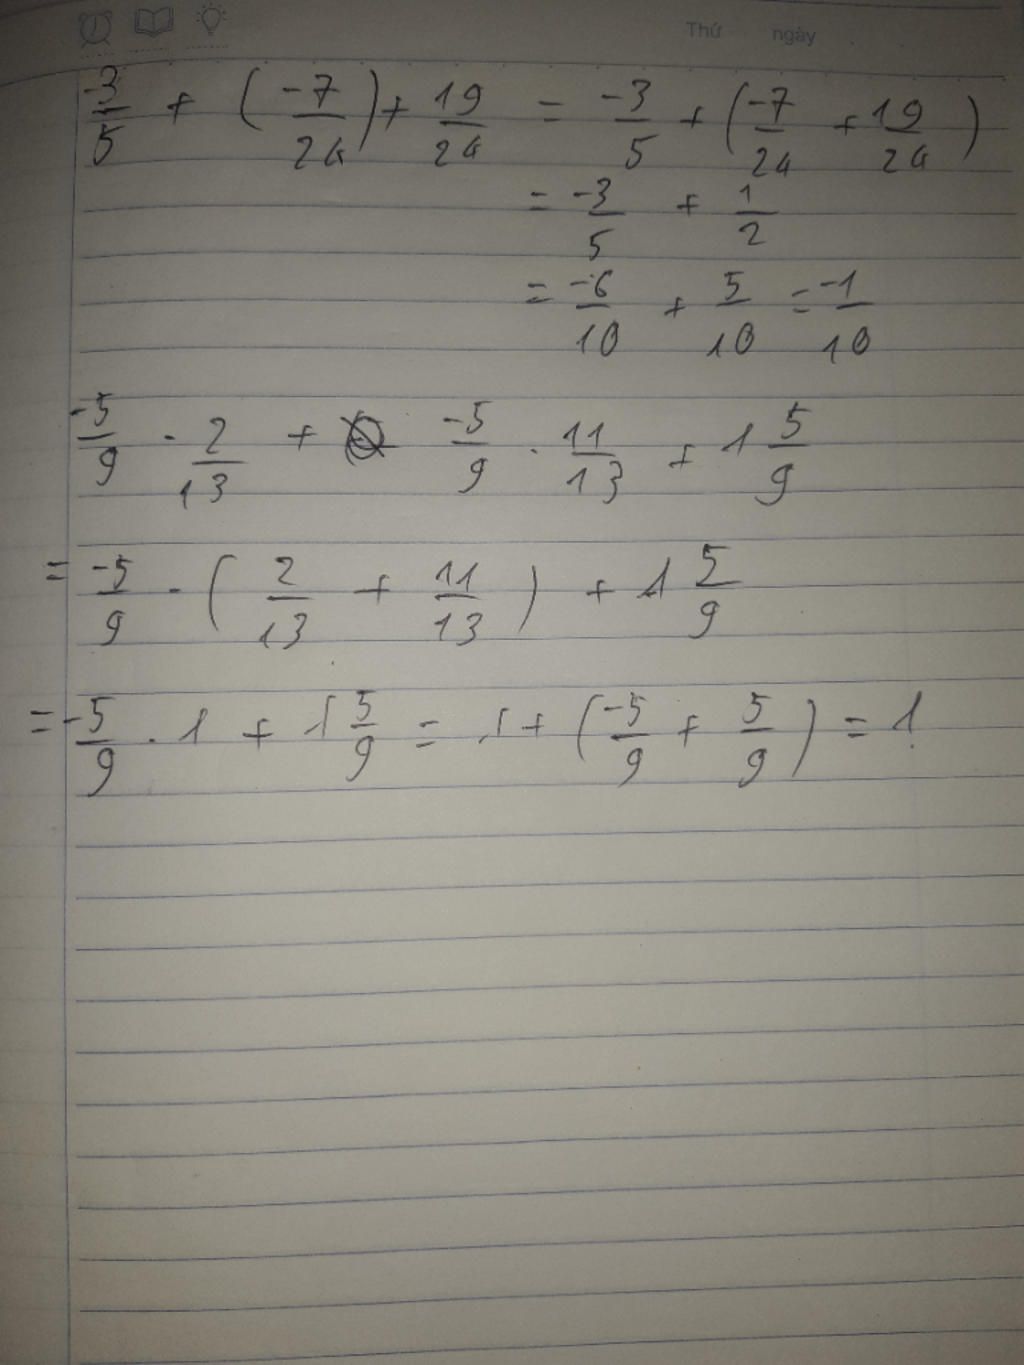 Thứ ngày
-3/5 + (-7/24) + 19/24 = -3/5 + (-7/24 + 19/24)
= -3/5 + 1/2
= -6/10 + 5/10 = -1/10
-5/9 . 2/13 + -5/9 . 11/13 + 1 5/9
= -5/9 . (2/13 + 11/13) + 1 5/9
= -5/9 . 1 + 1 5/9 = 1 + (-5/9 + 5/9) = 1